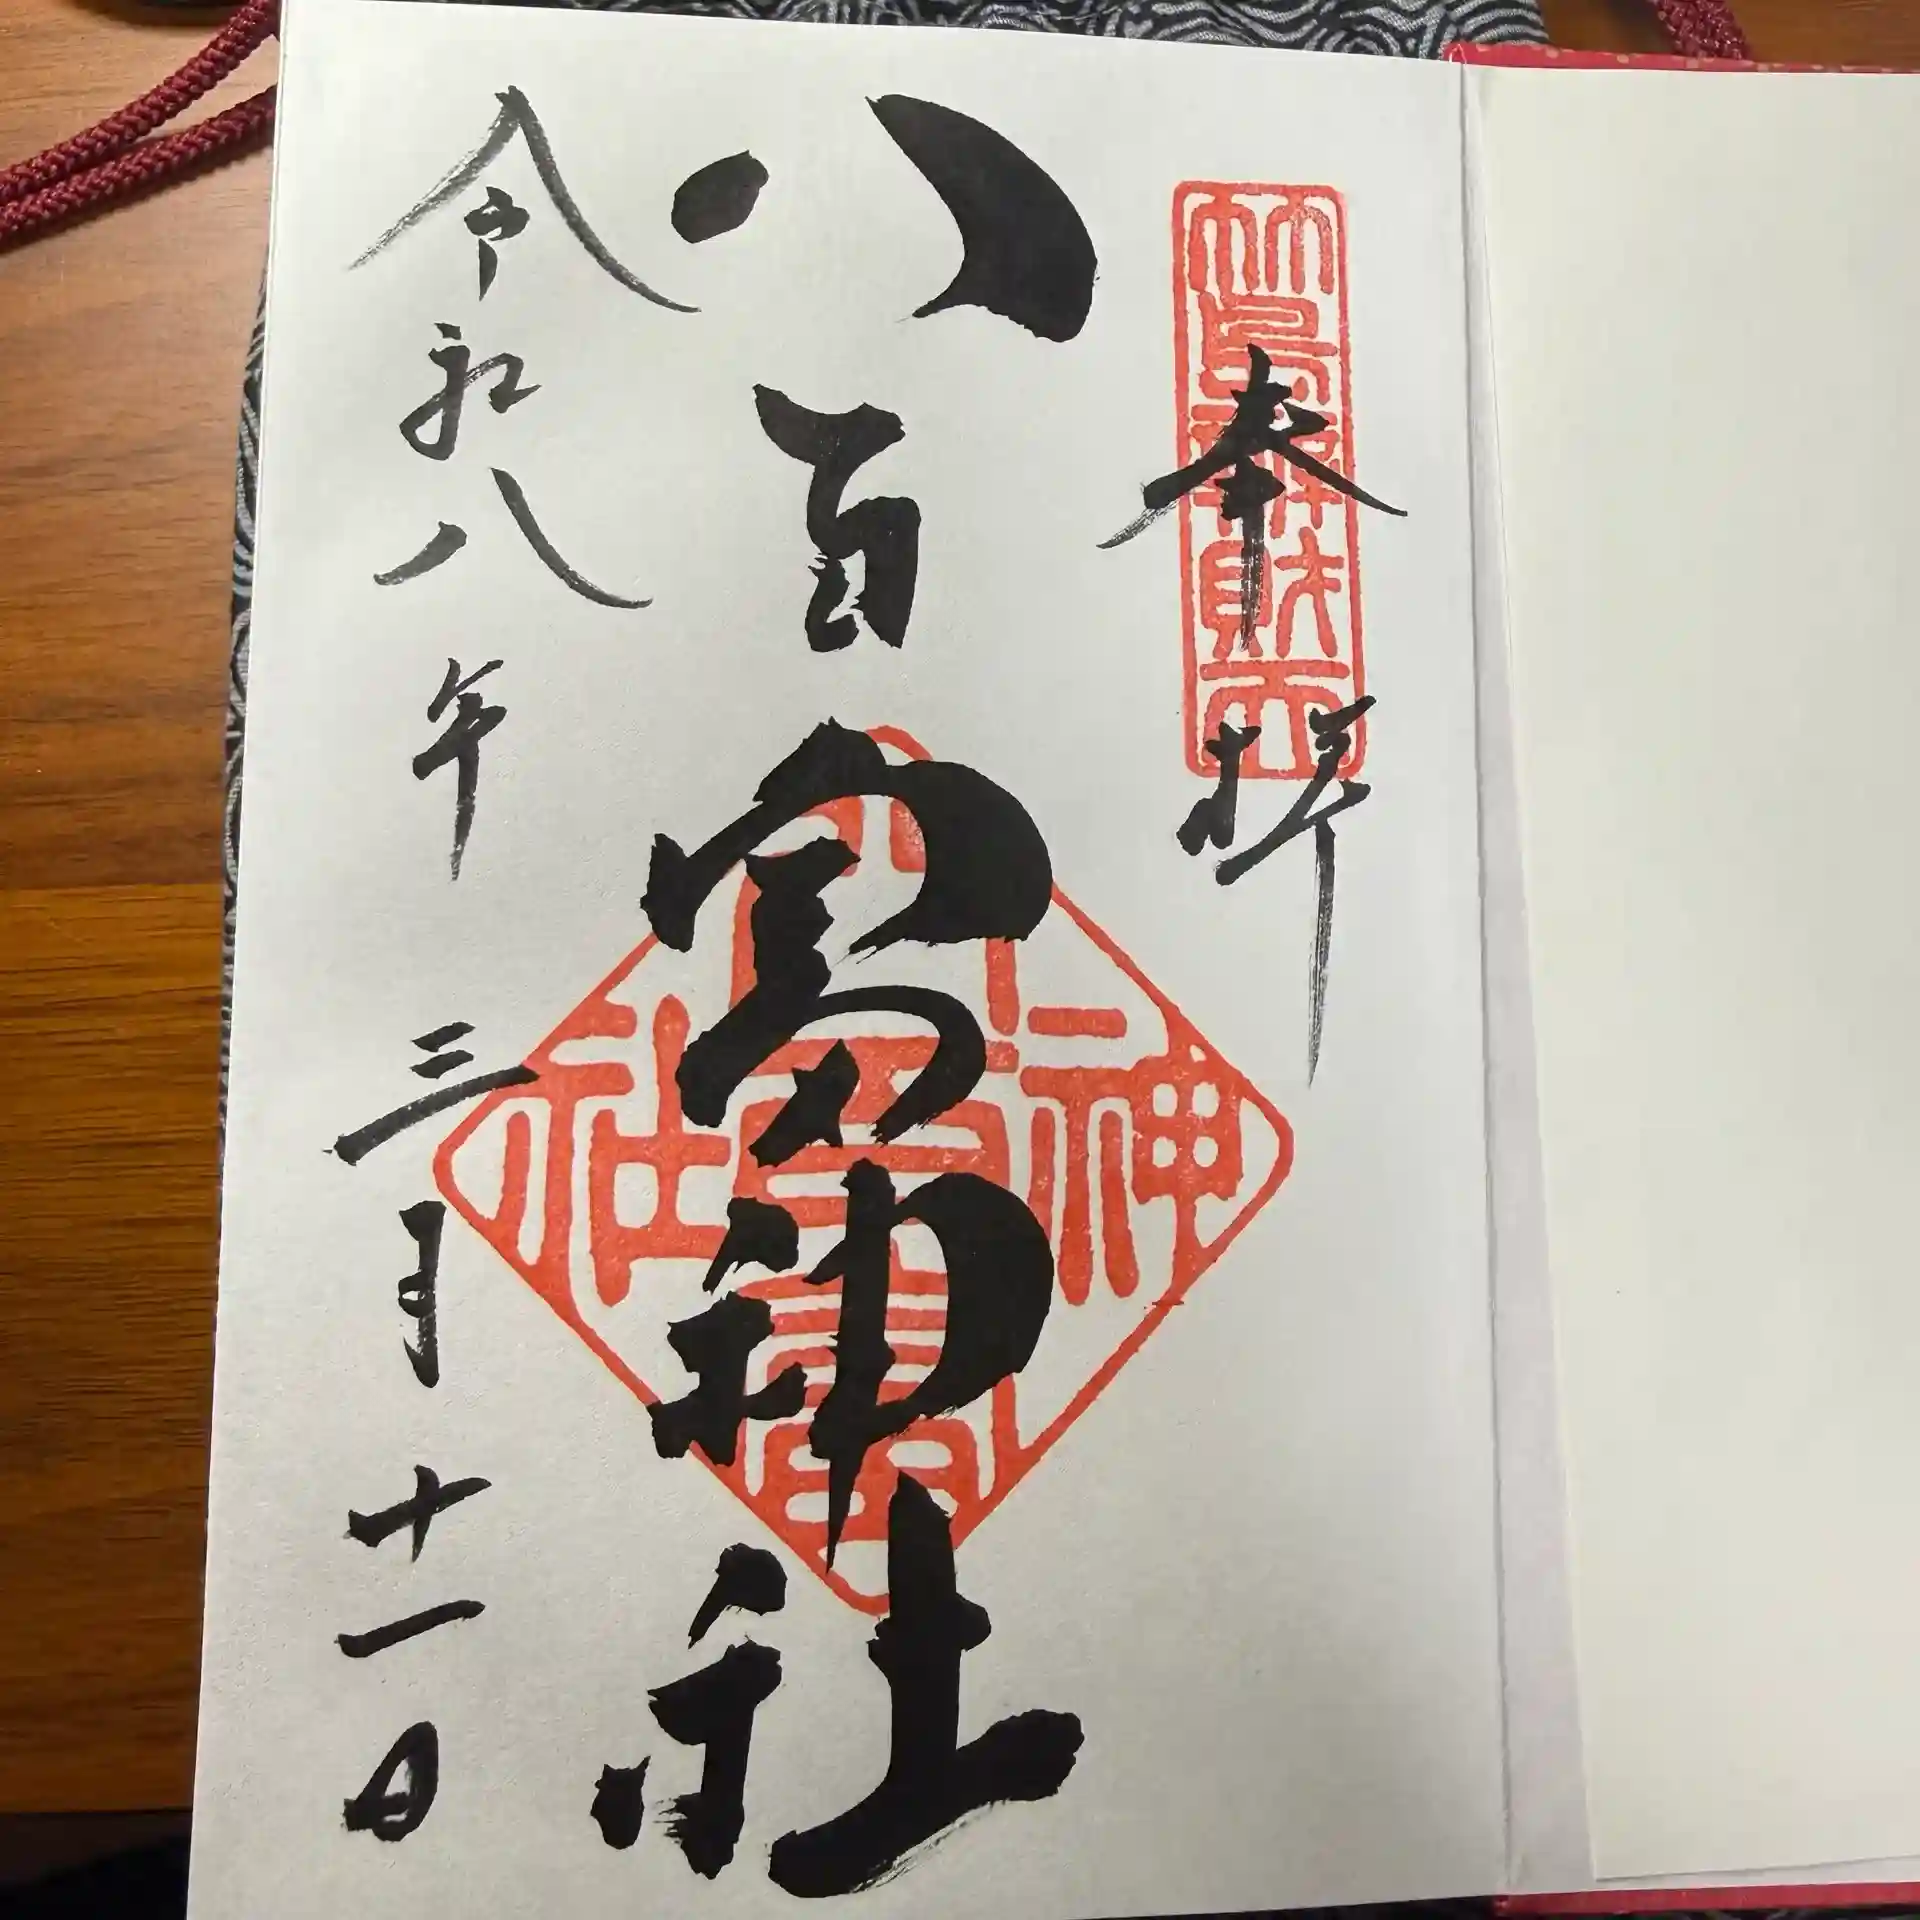 奉拝
八百富神社
令和八年三月十一日
竺生辨財天
八百富神社